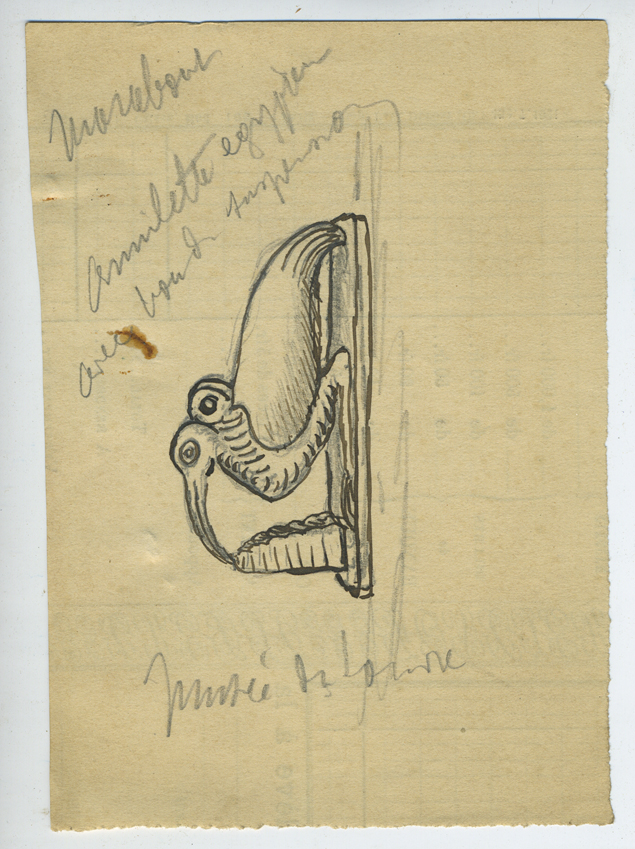 Marabout
Amulette egyptien
avec boucle suspension
Musée du Louvre